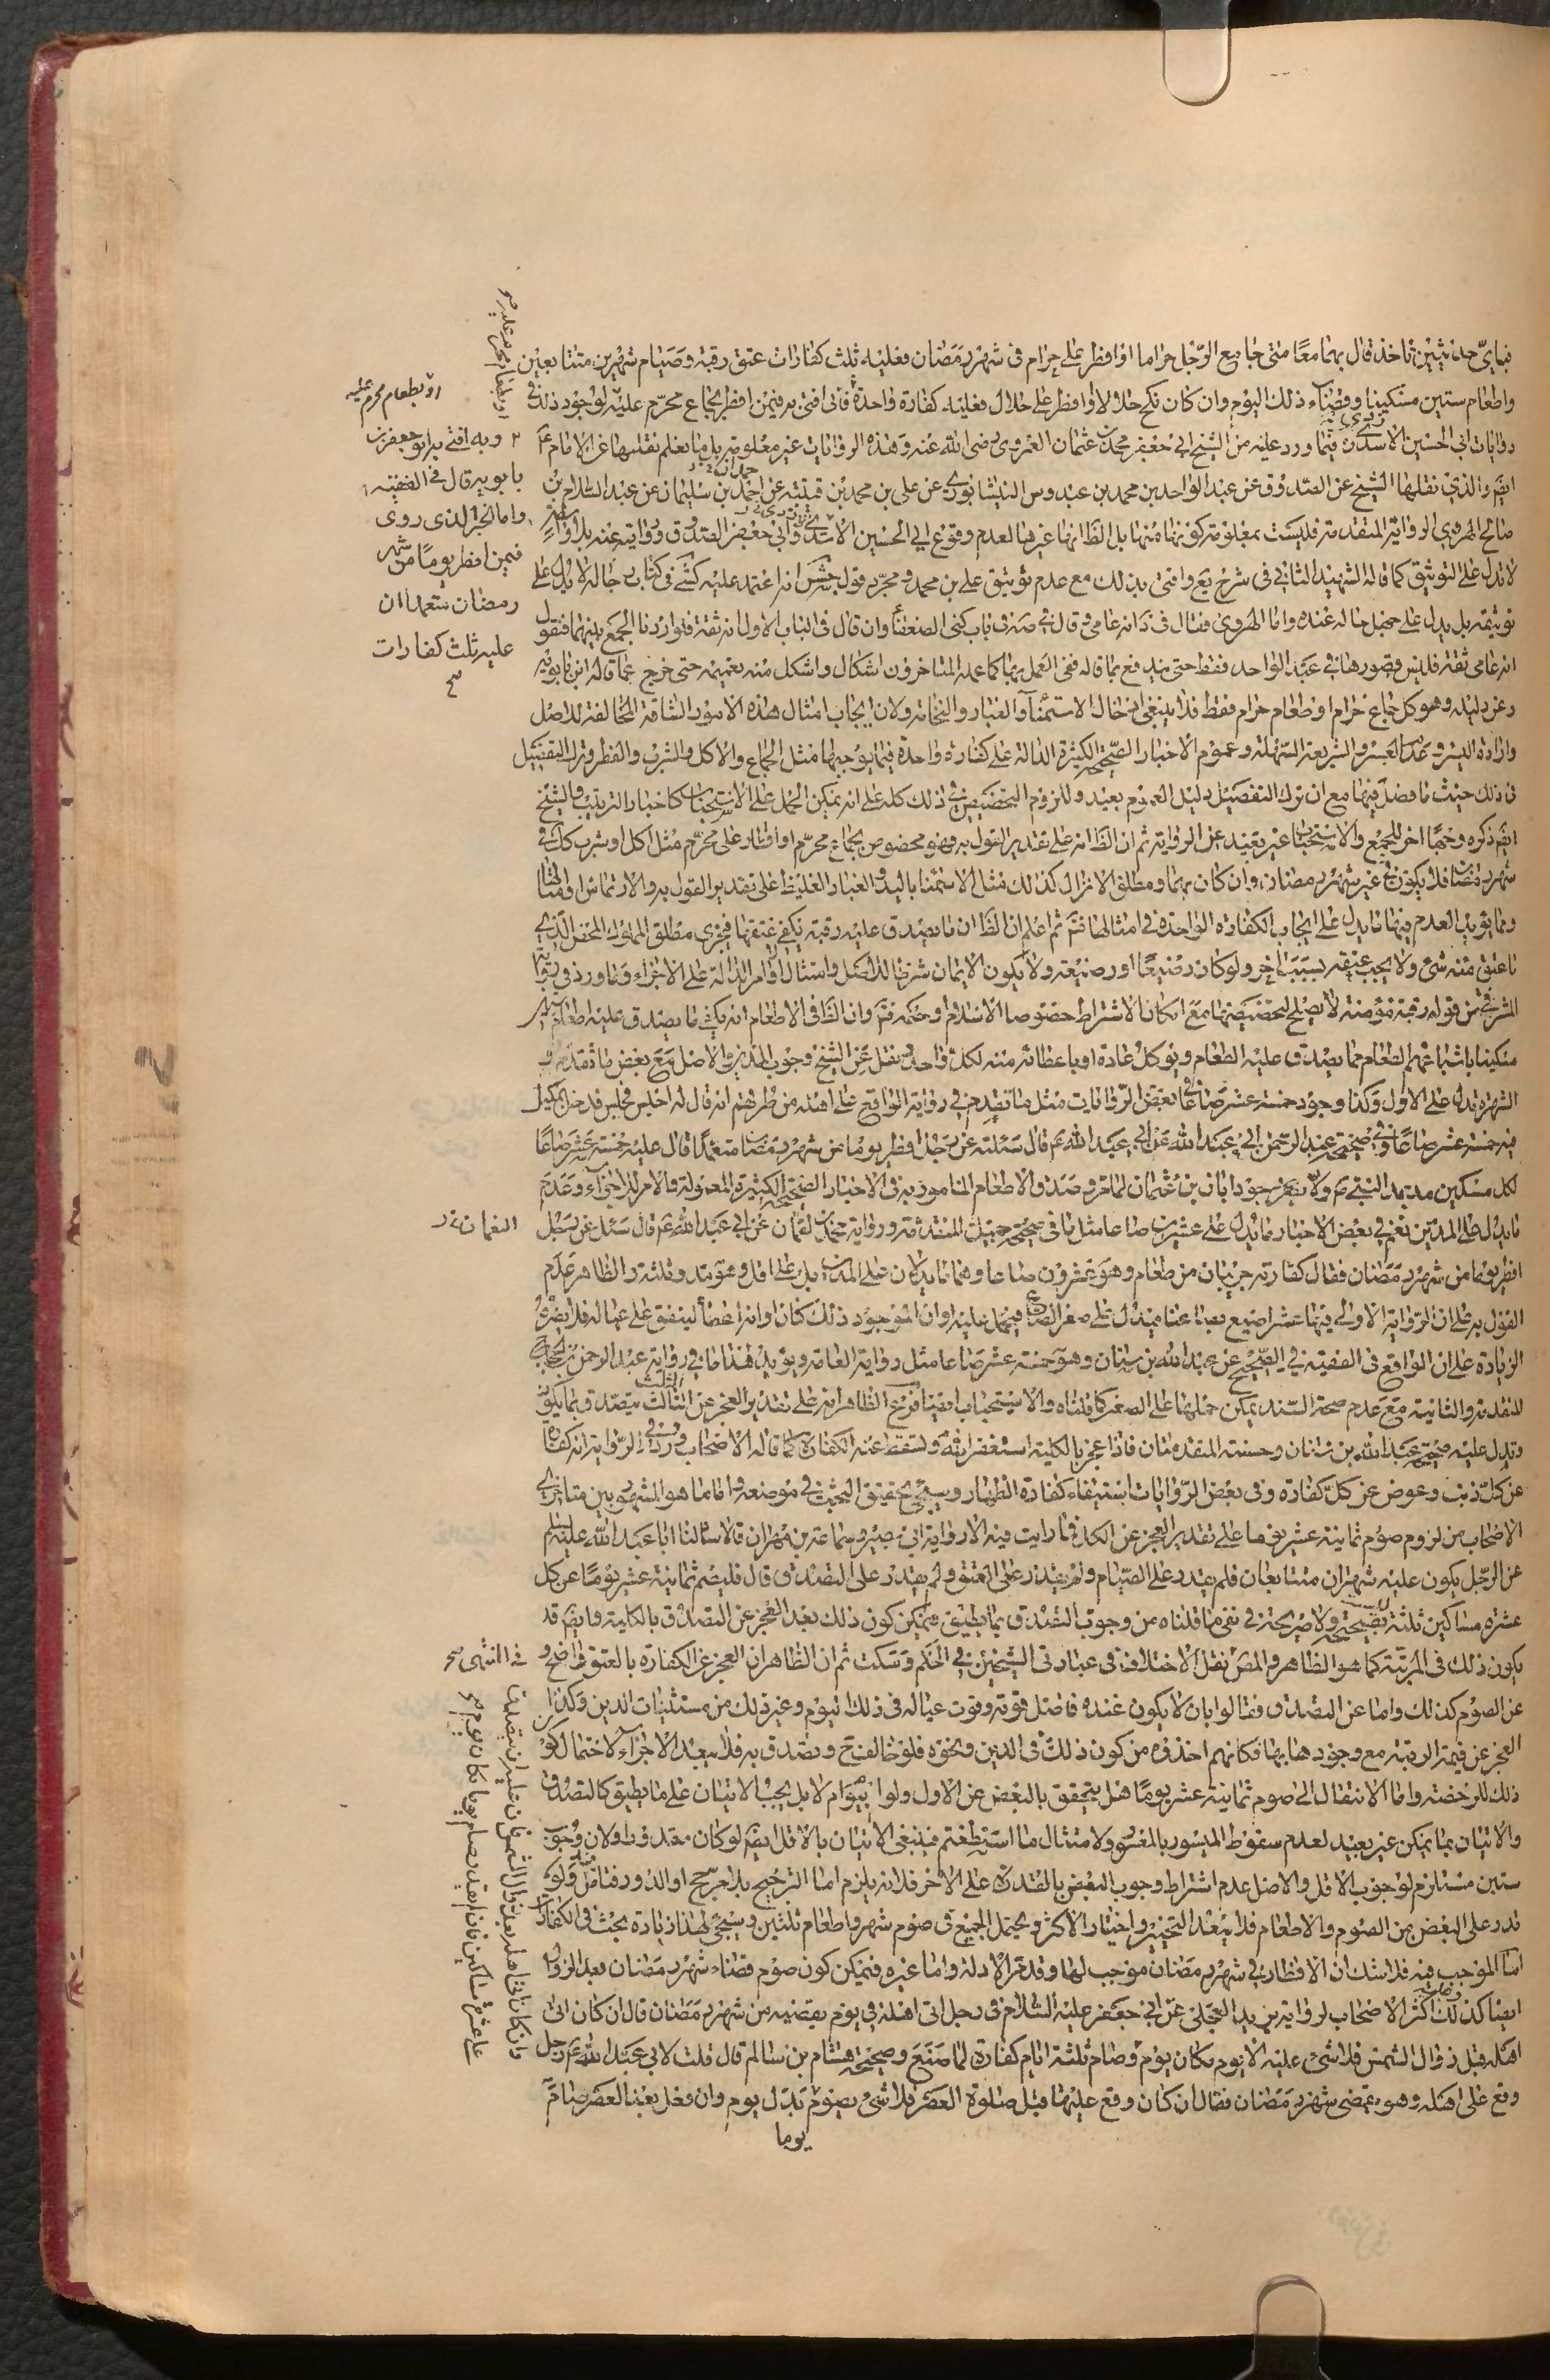 فبايّ حديثين ناخذ قال بهما معًا متى جامع الرّجل حراما او افطر على حرام فى شهر رمضان فعليه ثلث كفارات عتق رقبة وصيام شهرين متتابعين
واطعام ستين مسكينا وقضاء ذلك اليوم وان كان نكح حلالا او افطر على حلال فعليه كفارة واحدة فانى افتى به فيمن افطر بجماع محرّم عليه لوجود ذلك فى
روايات ابى الحسين الاسدى ره فيما ورد عليه من الشيخ ابى جعفر محمد بن عثمان العمروى رضى الله عنه وهذه الروايات غير معلومة بل ما نعلم نقلها عن الامام عم
ايضم والذى نقلها الشيخ عن الصدوق عن عبد الواحد بن محمد بن عبدوس النيشابورى عن على بن محمد بن قتيبة عن احمد بن سليمان عن عبد السلام بن
صالح الهروى الرواية المتقدمة فليست بمعلومة كونها منها بل الظ انها غيرها لعدم وقوع ابى الحسين الاسدى وابى جعفر الصدوق وروايته عنه بلا واسطة
لا تدل على التوثيق كما قاله الشهيد الثانى فى شرح يع وافتى بذلك مع عدم توثيق على بن محمد ومجرّد قول جش انه اعتمد عليه كشى فى كتاب رجاله لا يدل على
توثيقه بل يدل على حسن حاله عنده واما الهروى فقال فى د انه عامى وقال فى صه فى باب كنى الضعفاء وان قال فى الباب الاول انه ثقة فلو اردنا الجمع بينهما فنقول
انه عامى ثقة فليس قصورها فى عبد الواحد فقط حتى يندفع بما قاله ففى العمل بها كما عمله المتاخرون اشكال واشكل منه تعميمه حتى خرج عما قاله ابن بابويه
وعن دليله وهو كل جماع حرام او طعام حرام فقط فلا ينبغى ادخال الاستمناء والغبار والنخامة ولان ايجاب امثال هذه الامور الشاقة المخالفة للاصل
وارادة اليسر وعدم العسر والشريعة السّهلة وعموم الاخبار الصحيحة الكثيرة الدالة على كفارة واحدة فيما يوجبها مثل الجماع والاكل والشرب والفطر وترك التفصيل
فى ذلك حيث ما فصل فيها مع ان ترك التفصيل دليل العموم بعيد وللزوم التخصيص فى ذلك كله على انه يمكن الحمل على الاستحباب كاخبار الترتيب والشيخ
ايضم ذكره وجها اخر للجمع والاستحباب غير بعيد عن الرواية ثم ان الظ انه على تقدير القول به فهو مخصوص بجماع محرّم او افطار على محرّم مثل اكل او شرب كك فى
شهر رمضان فلا يكون فى غير شهر رمضان وان كان بهما ومطلق الانزال كذلك مثل الاستمناء باليد والغبار الغليظ على تقدير القول به والارتماس وامثالها
ومما يؤيد العدم فيها ما يدل على ايجاب الكفارة الواحدة فى امثالها فتم ثم اعلم ان الظ ان ما يصدق عليه رقبة يكفى عتقها فيجزى مطلق المملوك المحض الذى
ما عتق منه شئ ولا يجب عتقه بسبب اخر ولو كان رضيعًا او رضيعة ولا يكون الايمان شرطا للاصل وامتثال اوامر الدالة على الاجزاء وما ورد فى رواية
المشرقى من قوله رقبة مؤمنة لا يصلح لتخصيصها مع امكان الاشتراط خصوصا الاسلام وحكمه فتم وان الظ فى الاطعام انه يكفى ما يصدق عليه اطعام ستين
مسكينا باشباعهم الطعام مما يصدق عليه الطعام ويؤكل عادة او باعطائه منه لكل واحد ونقل عن الشيخ وجوب المدّين والاصل مع بعض ما تقدم و
الشهرة تدل على الاول وكذا وجود خمسة عشر صاعا فى بعض الروايات مثل ما تقدم فى رواية الواقع على اهله من طرقهم انه قال له اجلس فجلس فدخل مكيل
فيه خمسة عشر صاعًا وفى صحيحة عبد الرحمن بن ابى عبد الله عن ابى عبد الله عم قال سئلته عن رجل افطر يوما من شهر رمضان متعمدًا قال عليه خمسة عشر صاعًا
لكل مسكين مد بمد النبى صم ولا يضر وجود ابان بن عثمان لما مر وصدق الاطعام المامور به فى الاخبار الصحيحة الكثيرة المعمولة والامر للاجزاء وعدم
ما يدل على المدّين نعم فى بعض الاخبار ما يدل على عشرين صاعا مثل ما فى صحيحة جميل المتقدمة ورواية محمد بن لقمان عن ابى عبد الله عم قال سئل عن رجل
افطر يوما من شهر رمضان فقال كفارته جريبان من طعام وهو عشرون صاعا وهما ما يدلان على المدين بل على اقل وهو مد وثلثه والظاهر عدم
القول به على ان الرّواية الاولى فيها عشر اصوع بصاعنا فيدل على صغر الصاع فيحمل عليه او ان الموجود ذلك كان او انه اعطاه لينفق على عياله فلا يضره
الزيادة على ان الواقع فى الفقيه فى الصحيح عن عبد الله بن سنان وهو خمسة عشر صاعا مثل رواية العامة ويؤيد هذا ما فى رواية عبد الرحمن بن الحجاج
المتقدمة والثانية مع عدم صحة السند يمكن حملها على الصغر كما قلناه والاستحباب ايضا فرع الظاهر انه على تقدير العجز عن الثلث يتصدق بما يكون
وتدل عليه صحيحة عبد الله بن سنان وحسنته المتقدمتان فاذا عجز بالكلية استغفر الله ولسقط عنه الكفارة كما قاله الاصحاب وورد فى الرّواية انه كفارة
عن كلّ ذنب وعوض عن كلّ كفارة وفى بعض الرّوايات استيفاء كفارة الظهار وسيجئ تحقيق البحث فى موضعه واما ما هو المشهور بين متاخرى
الاصحاب من لزوم صوم ثمانية عشر يوما على تقدير العجز عن الكل فما رايت فيه الا رواية ابى بصير وسماعة بن مهران قالا سألنا ابا عبد الله عليه السلام
عن الرّجل يكون عليه شهران متتابعان فلم يقدر على الصّيام ولم يقدر على العتق ولم يقدر على التصدق قال فليصم ثمانية عشر يومًا عن كل
عشرة مساكين ثلثة وليست بصحيحة ولا صريحة فى نفى ما قلناه من وجوب التصدق بما يطيق فيمكن كون ذلك بعد العجز عن التصدق بالكلية وايضم قد
يكون ذلك فى المرتبة كما هو الظاهر والمص نقل الاختلاف فى عبارتى الشيخين فى الحكم وسكت ثم ان الظاهر ان العجز عن الكفارة بالعتق واضح و
عن الصّوم كذلك واما عن التصدق فقالوا بان لا يكون عنده فاضل قوته وقوت عياله فى ذلك اليوم وغير ذلك من مستثنيات الدين وكذا
العجز عن قيمة الرقبة مع وجودها بها فكانهم اخذوه من كون ذلك فى الدين ونحوه فلو خالف وتصدق به فلا يبعد الاجزاء لاحتمال كون
ذلك للرخصة واما الانتقال الى صوم ثمانية عشر يومًا هل يتحقق بالبعض عن الاول ولو بيوم ام لا بل يجب الاتيان على ما يطيق كالتصدق
والاتيان بما يمكن غير بعيد لعدم سقوط الميسور بالمعسور ولامتثال ما استطعتم فينبغى الاتيان بالاقل ايضم لو كان مقدورا ولان وجوب
ستين مستلزم لوجوب الاقل والاصل عدم اشتراط وجوب البعض بالقدرة على الاخر فلانه يلزم اما الترجيح بلا مرجح او الدور فتامل ولو
قدر على البعض من الصّوم والاطعام فلا يبعد التخيير واختيار الاكثر ويحتمل الجميع فى صوم شهر واطعام ثلثين وسيجئ لهذا زيادة بحث فى الكفارات
اما الموجب فيه فلا شك ان الافطار فى شهر رمضان موجب لها وقد مرّ الادلة واما غيره فيمكن كون صوم قضاء شهر رمضان بعد الزوال
ايضا كذلك وعليه اكثر الاصحاب لرواية بريد العجلى عن ابى جعفر عليه السّلام فى رجل اتى اهله فى يوم يقضيه من شهر رمضان قال ان كان اتى
اهله قبل زوال الشمس فلا شئ عليه الا يوم مكان يوم وصام ثلثة ايام كفارة لما صنع وصحيحة هشام بن سالم قال قلت لابى عبد الله عم رجل
وقع على اهله وهو يقضى شهر رمضان فقال ان كان وقع عليها قبل صلوة العصر فلا شئ يصوم بدل يوم وان فعل بعد العصر صام
يوما
او بطعام محرم عليه
٢ وبه افتى به ابو جعفر بن
بابويه قال فى الفقيه
واما الخبر الذى روى
فيمن افطر يومًا من شهر
رمضان متعمدا ان
عليه ثلث كفارات
النعمان
فى المنتهى
وان كان اتى اهله بعد زوال الشمس فان عليه ان يتصدق
على عشرة مساكين فان لم يقدر صام يوما مكان يوم